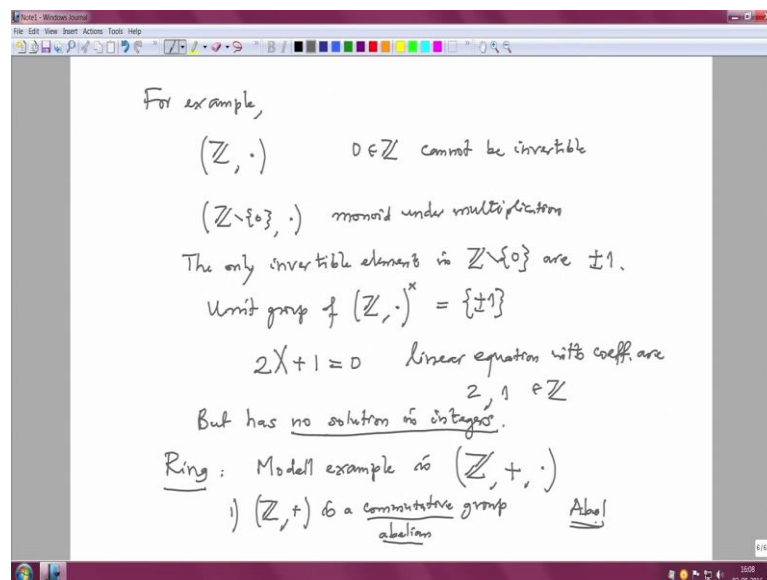 Note1 - Windows Journal
File Edit View Insert Actions Tools Help
For example,
(ℤ, ·) 0 ∈ ℤ cannot be invertible
(ℤ∖{0}, ·) monoid under multiplication
The only invertible element in ℤ∖{0} are ±1.
Unit group of (ℤ, ·)^× = {±1}
2X+1=0 linear equation with coeff. are
2, 1 ∈ ℤ
But has no solution in integers.
Ring : Modell example is (ℤ, +, ·)
1) (ℤ, +) is a commutative group Abel
abelian
6/6
16:08